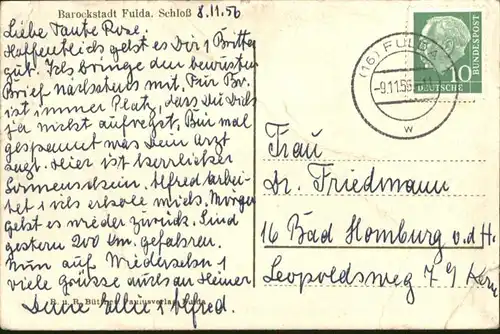 Barockstadt Fulda, Schloß 8.11.56
Liebe Tante Rose,
Hoffentlich geht es Dir
gut. Ich bringe den bewussten
Brief mit. Für
ist immer Platz, dass Du Dich
ja nicht aufregst, Bin mal
gespannt was Dein Arzt
sagt. Hier ist herrlicher
Sonnenschein. Alfred arbei-
tet, ich erhole mich. Morgen
geht es wieder zurück. Sind
gestern 200 km. gefahren.
Nun auf Wiedersehn
viele Grüsse auch an Heiner
Deine Alfred.
(16) FULDA
-9.11.56
w
DEUTSCHE
BUNDESPOST
10
Frau
Dr. Friedmann
16 Bad Homburg v.d.H.
Leopoldsweg 7